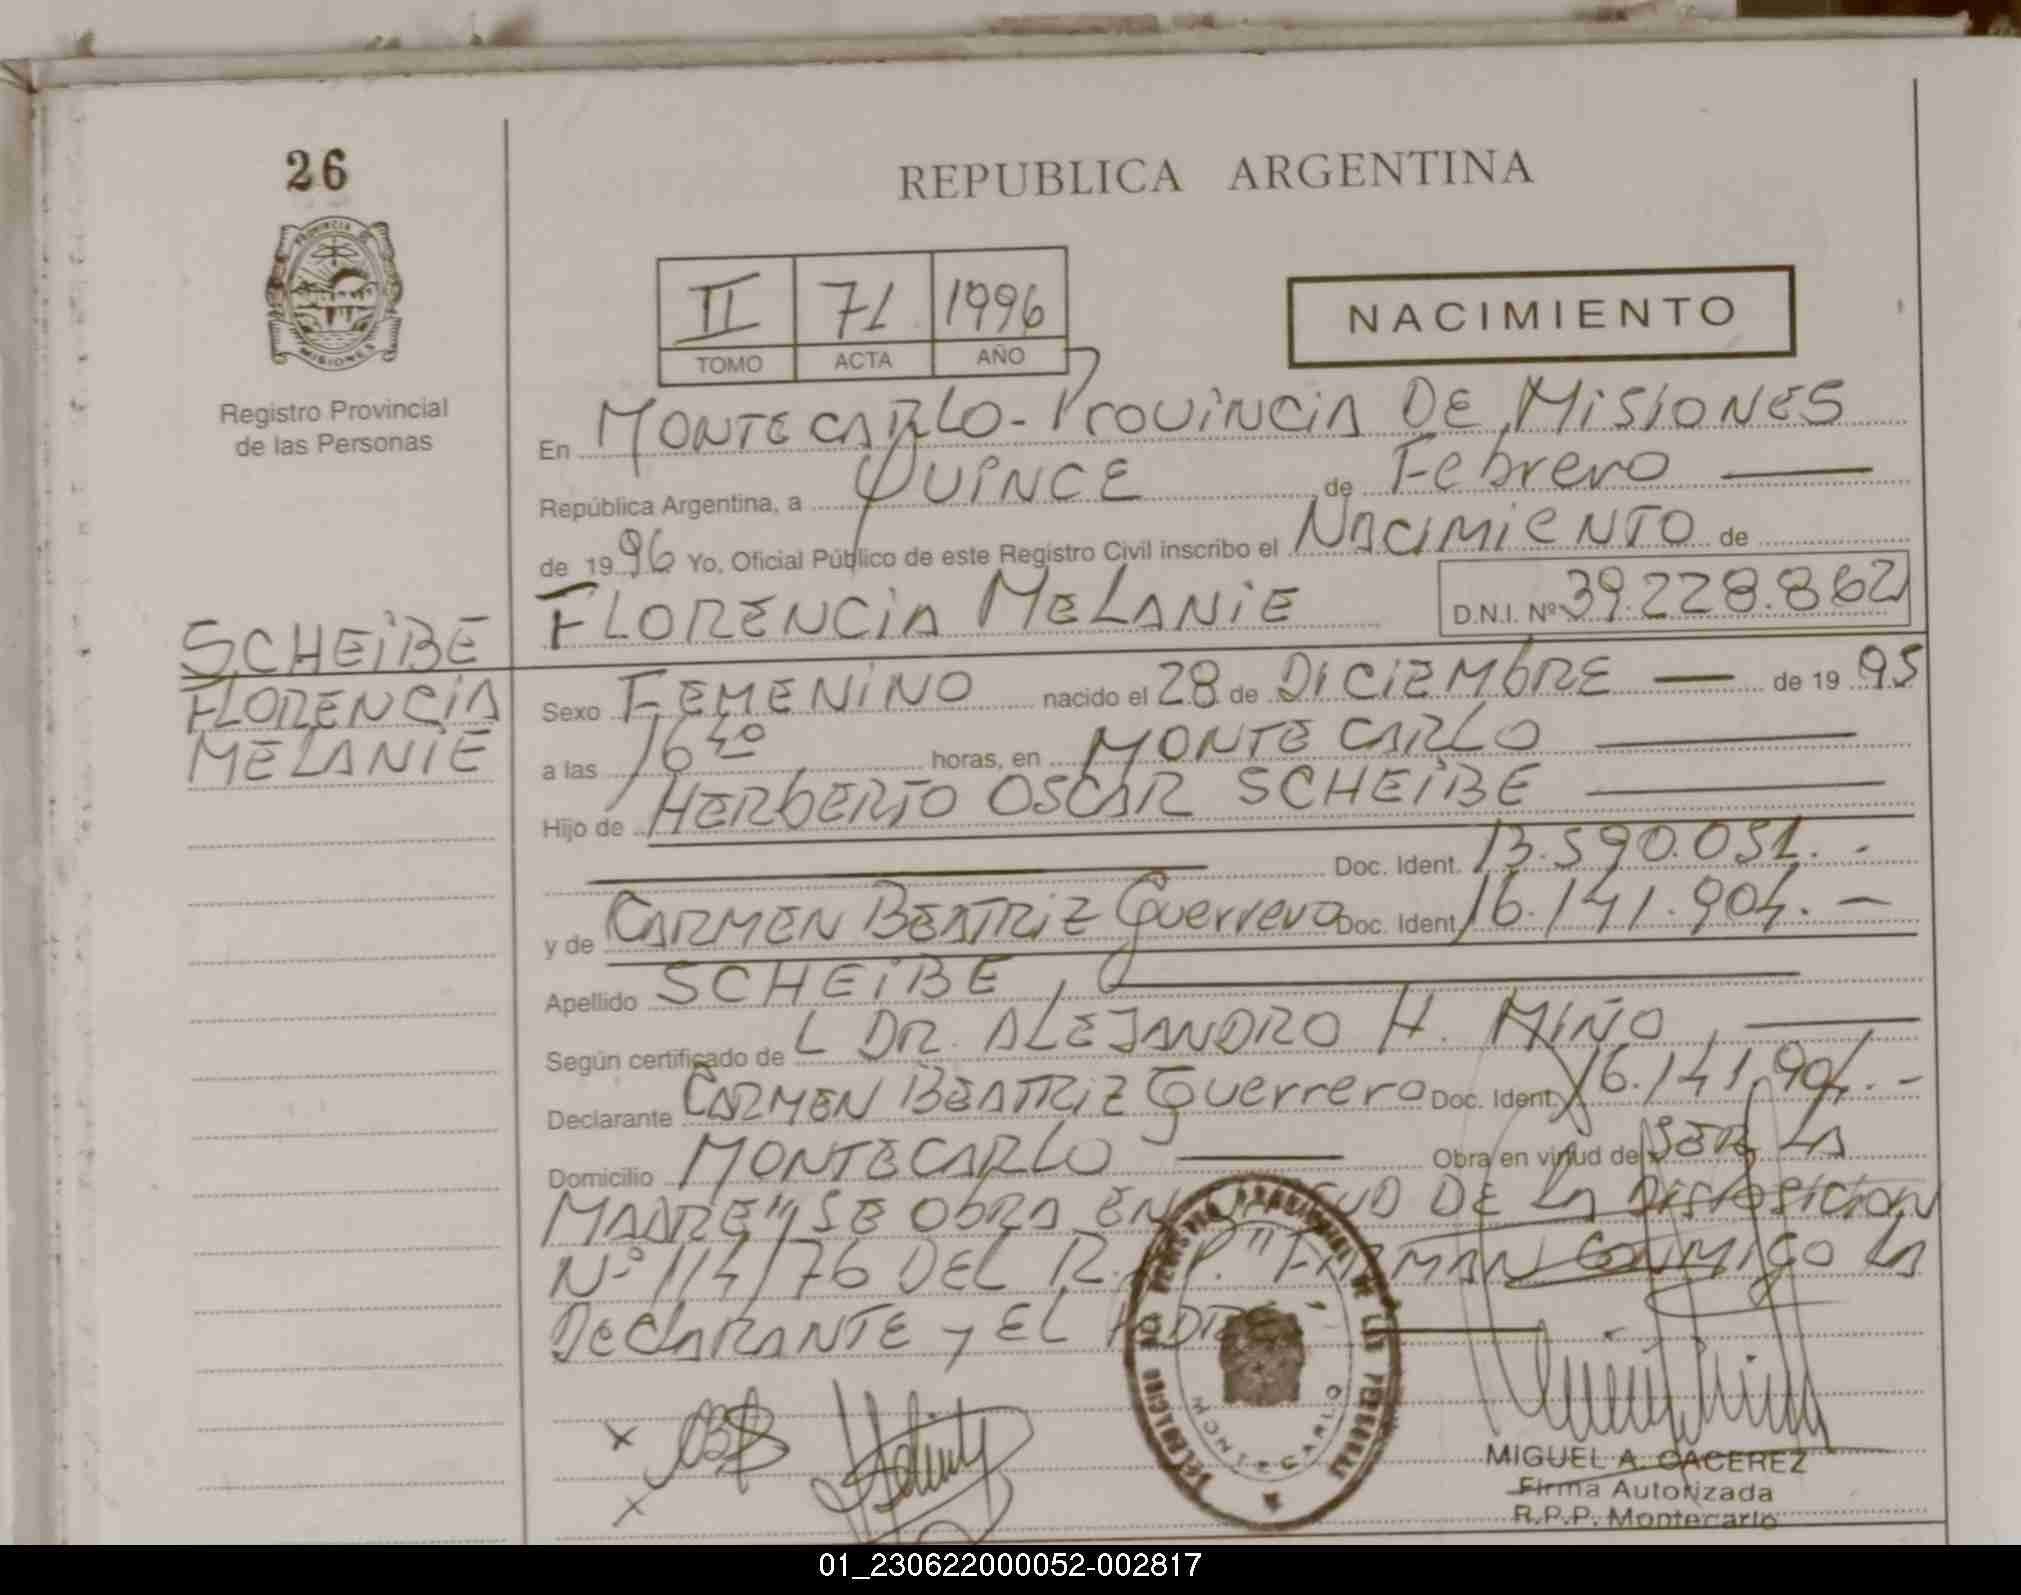 26
PROVINCIA DE
MISIONES
Registro Provincial
de las Personas
SCHEIBE
FLORENCIA
MELANIE
REPUBLICA ARGENTINA
II 71 1996
TOMO ACTA AÑO
NACIMIENTO
En MONTECARLO - PROVINCIA DE MISIONES
República Argentina, a QUINCE de Febrero
de 1996 Yo, Oficial Público de este Registro Civil inscribo el NACIMIENTO de
FLORENCIA MELANIE D.N.I. Nº 39.228.862
Sexo FEMENINO nacido el 28 de DICIEMBRE de 1995
a las 16 40 horas, en MONTECARLO
Hijo de HERBERTO OSCAR SCHEIBE
Doc. Ident. 13.590.051.-
y de CARMEN BEATRIZ Guerrero Doc. Ident 16.141.904.-
Apellido SCHEIBE
Según certificado de L DR. ALEJANDRO H. MIÑO
Declarante CARMEN BEATRIZ Guerrero Doc. Ident 16.141.904.-
Domicilio MONTECARLO Obra en virtud de SER LA
MADRE" SE OBRA EN VIRTUD DE LA DISPOSICION
Nº 114/76 DEL R.P.P. "FIRMAN CONMIGO LA
DECLARANTE y EL PADRE
REGISTRO PROVINCIAL DE LAS PERSONAS
MONTECARLO
MIGUEL A. CACEREZ
Firma Autorizada
R.P.P. Montecarlo
01_230622000052-002817